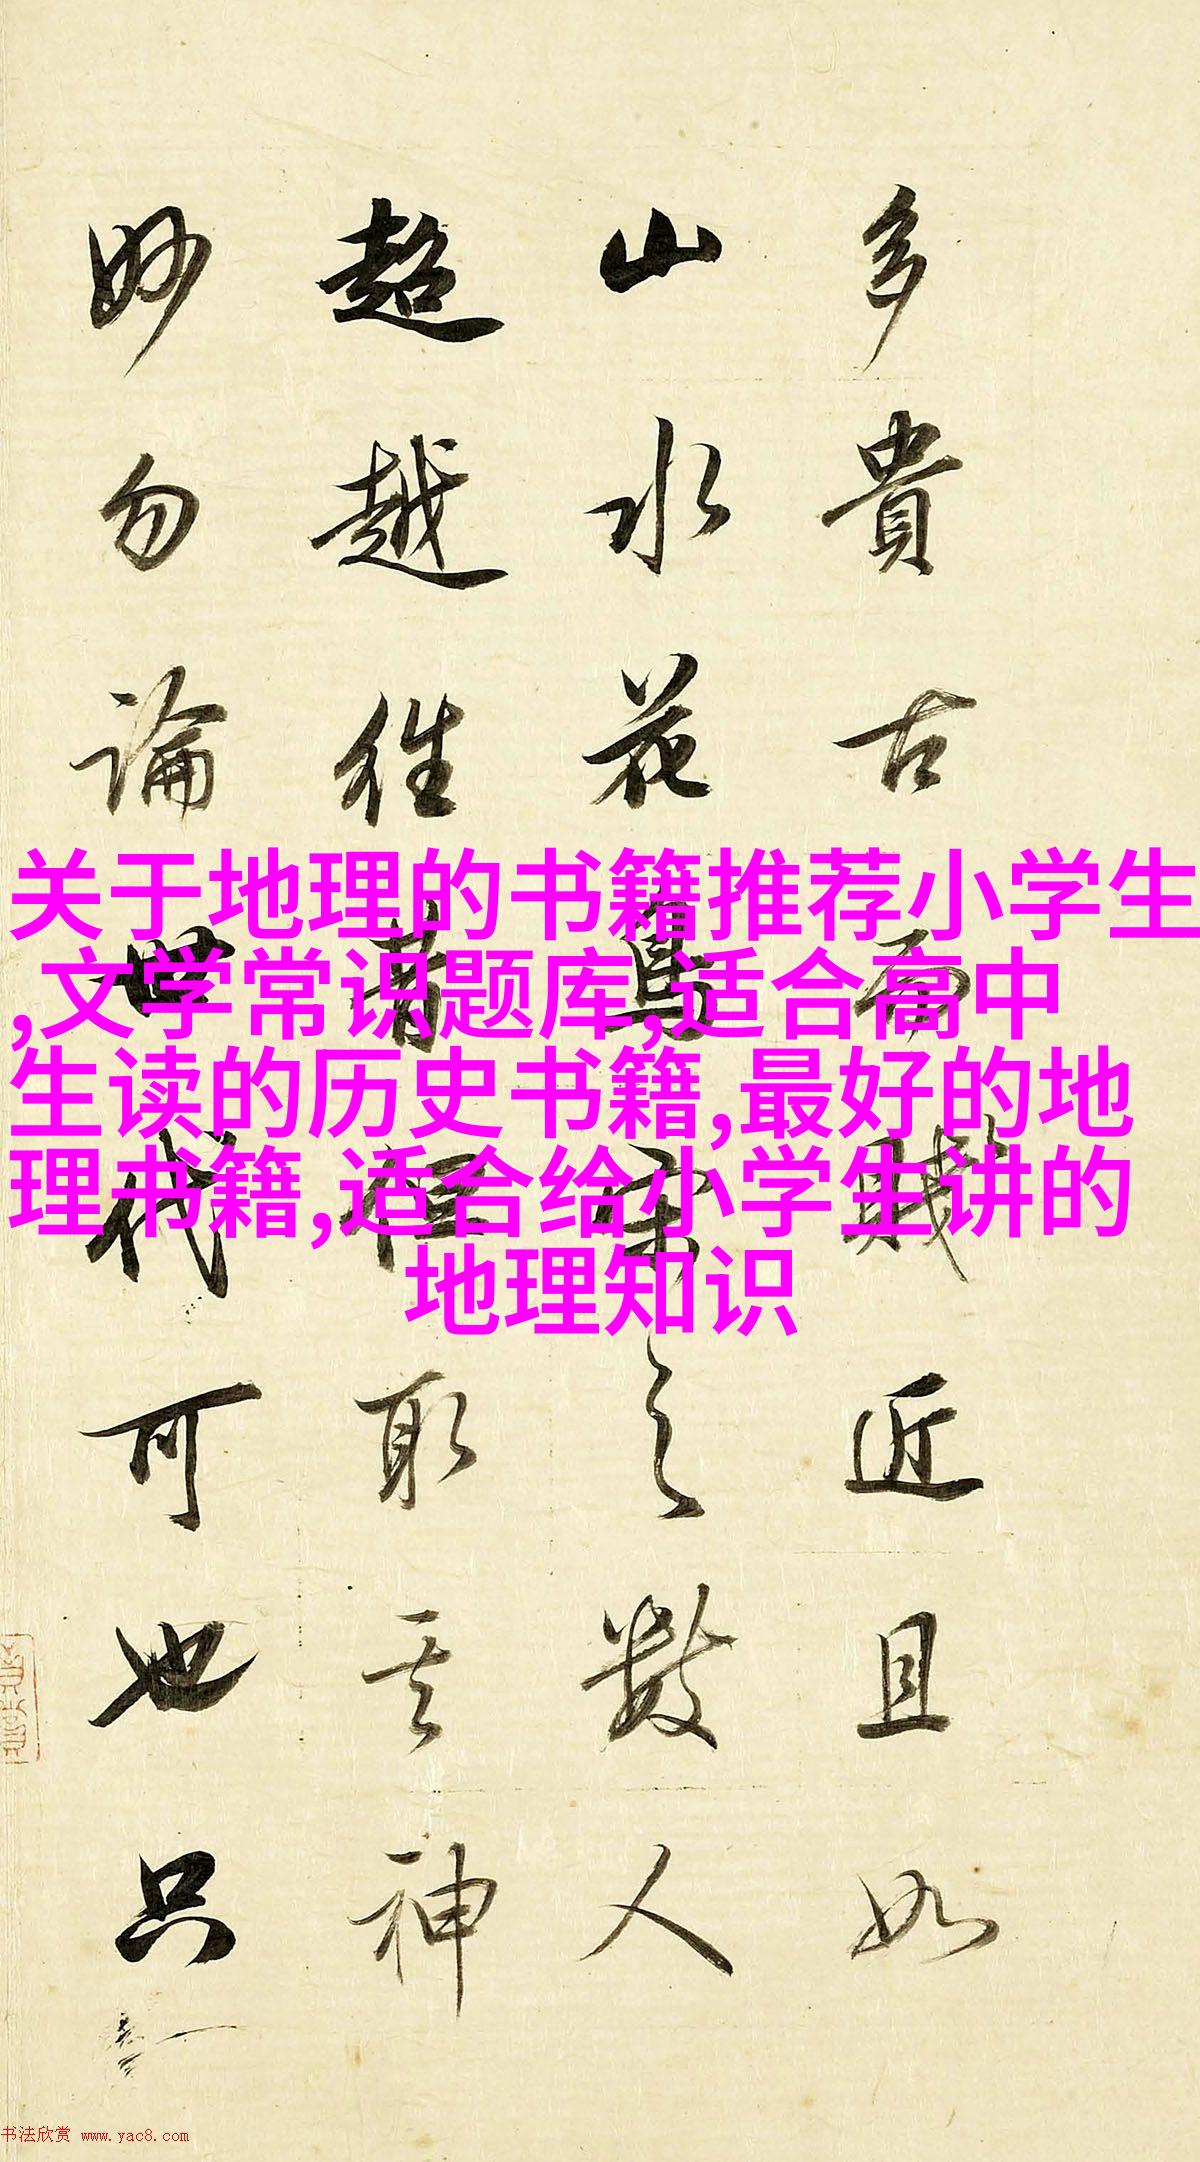 多貴古而賤近且如
山水花鳥宋之數人
超越往昔但取其神
妙勿論世代可也只
关于地理的书籍推荐小学生
,文学常识题库,适合高中
生读的历史书籍,最好的地
理书籍,适合给小学生讲的
地理知识
书法欣赏 www.yac8.com